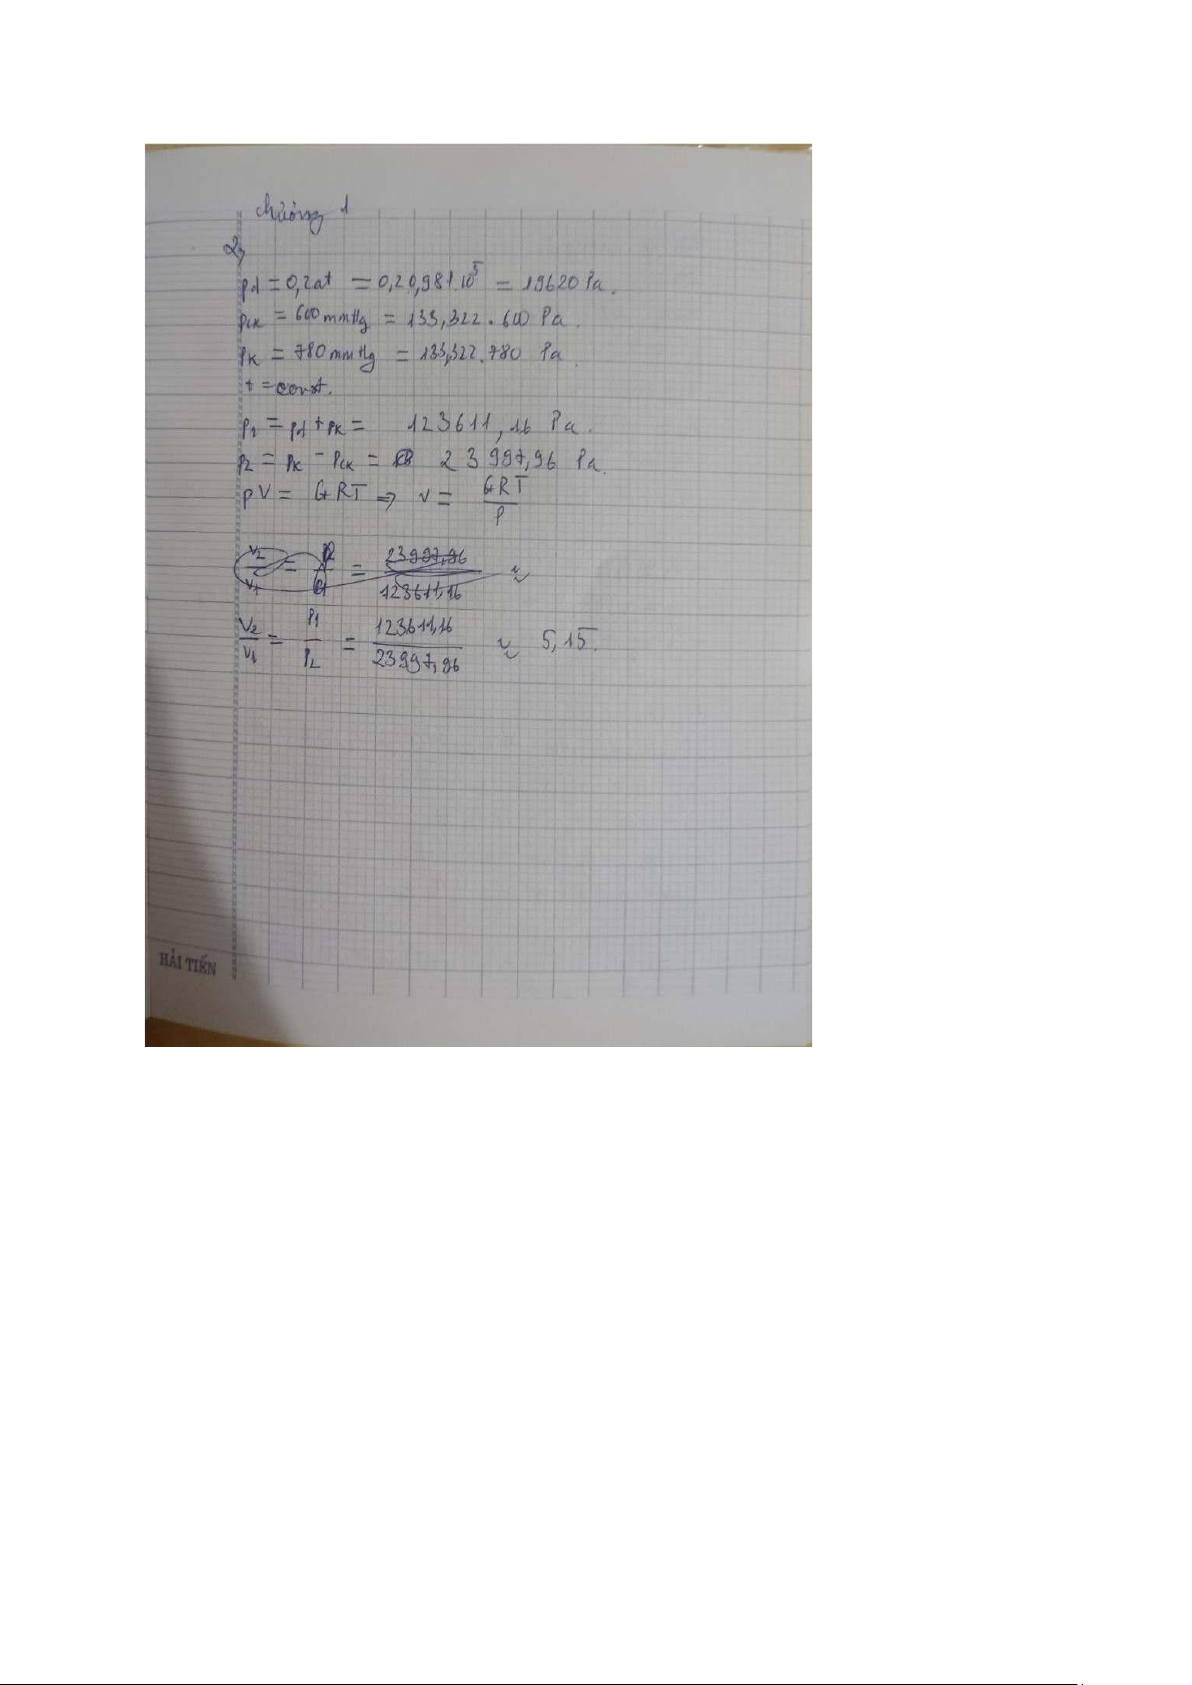 Chương 1
2,
pd = 0,2at = 0,2.0,981.10^5 = 19620 Pa.
pck = 600 mmHg = 133,322.600 Pa.
pk = 780 mmHg = 133,322.780 Pa.
t = const.
p1 = pd + pk = 123611,16 Pa.
p2 = pk - pck = 23997,96 Pa.
pV = GRT => V = GRT/P
V2/V1 = P2/P1 = 23997,96/123611,16 ≈
V2/V1 = P1/P2 = 123611,16/23997,96 ≈ 5,15.
HẢI TIẾN